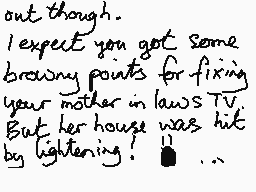 out though.
I expect you got some
browny points for fixing
your mother in laws TV.
But her house was hit
by lightening! ...